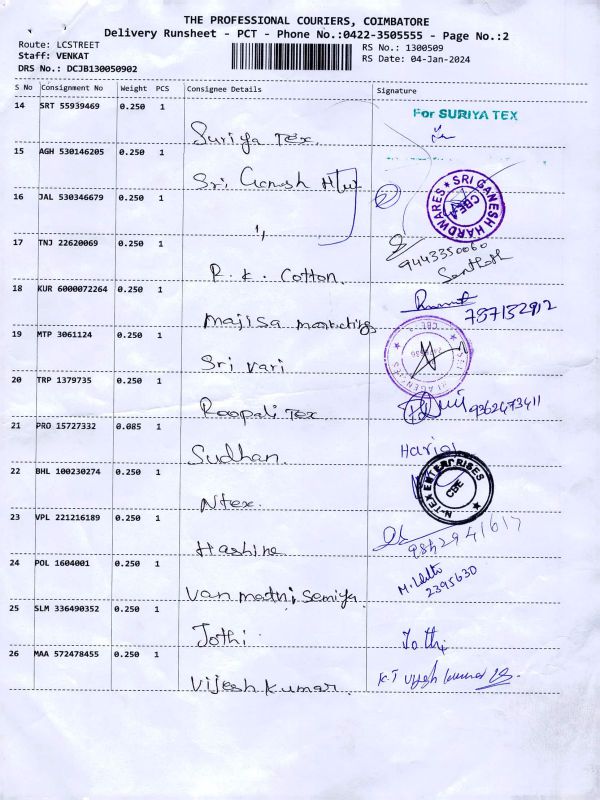 THE PROFESSIONAL COURIERS, COIMBATORE
Delivery Runsheet - PCT - Phone No.:0422-3505555 - Page No.:2
Route: LCSTREET
Staff: VENKAT
DRS No.: DCJB130050902
RS No.: 1300509
RS Date: 04-Jan-2024
S No Consignment No Weight PCS Consignee Details Signature
14 SRT 55939469 0.250 1
For SURIYA TEX
Suriya Tex.
15 AGH 530146205 0.250 1
Sri Ganesh
16 JAL 530346679 0.250 1
SRI GANESH HARDWARES CBE
17 TNJ 22620069 0.250 1
9443350060
R. K. Cotton.
Santhosh
18 KUR 6000072264 0.250 1
737132912
Majisa Marketings
19 MTP 3061124 0.250 1
Sri vari
20 TRP 1379735 0.250 1
Roopali Tex
9362473411
21 PRO 15727332 0.085 1
Sudhan.
22 BHL 100230274 0.250 1
N-TEX ENTERPRISES CBE
Ntex.
23 VPL 221216189 0.250 1
Hashine
24 POL 1604001 0.250 1
2395630
Van mathi Semiya.
25 SLM 336490352 0.250 1
Jothi
Jothi
26 MAA 572478455 0.250 1
K.T Vijesh kumar
Vijesh kumar.